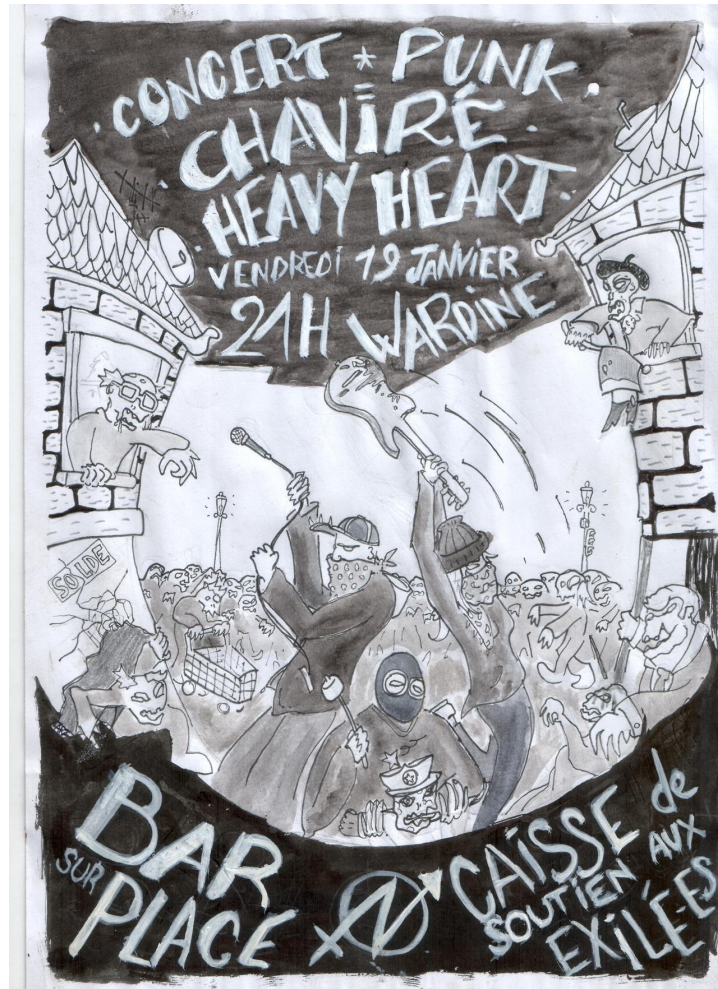 CONCERT * PUNK
CHAVIRÉ
HEAVY HEART
VENDREDI 19 JANVIER
21H WARDINE
SOLDE
BAR
SUR
PLACE
CAISSE de
SOUTIEN AUX
EXILÉ·E·S